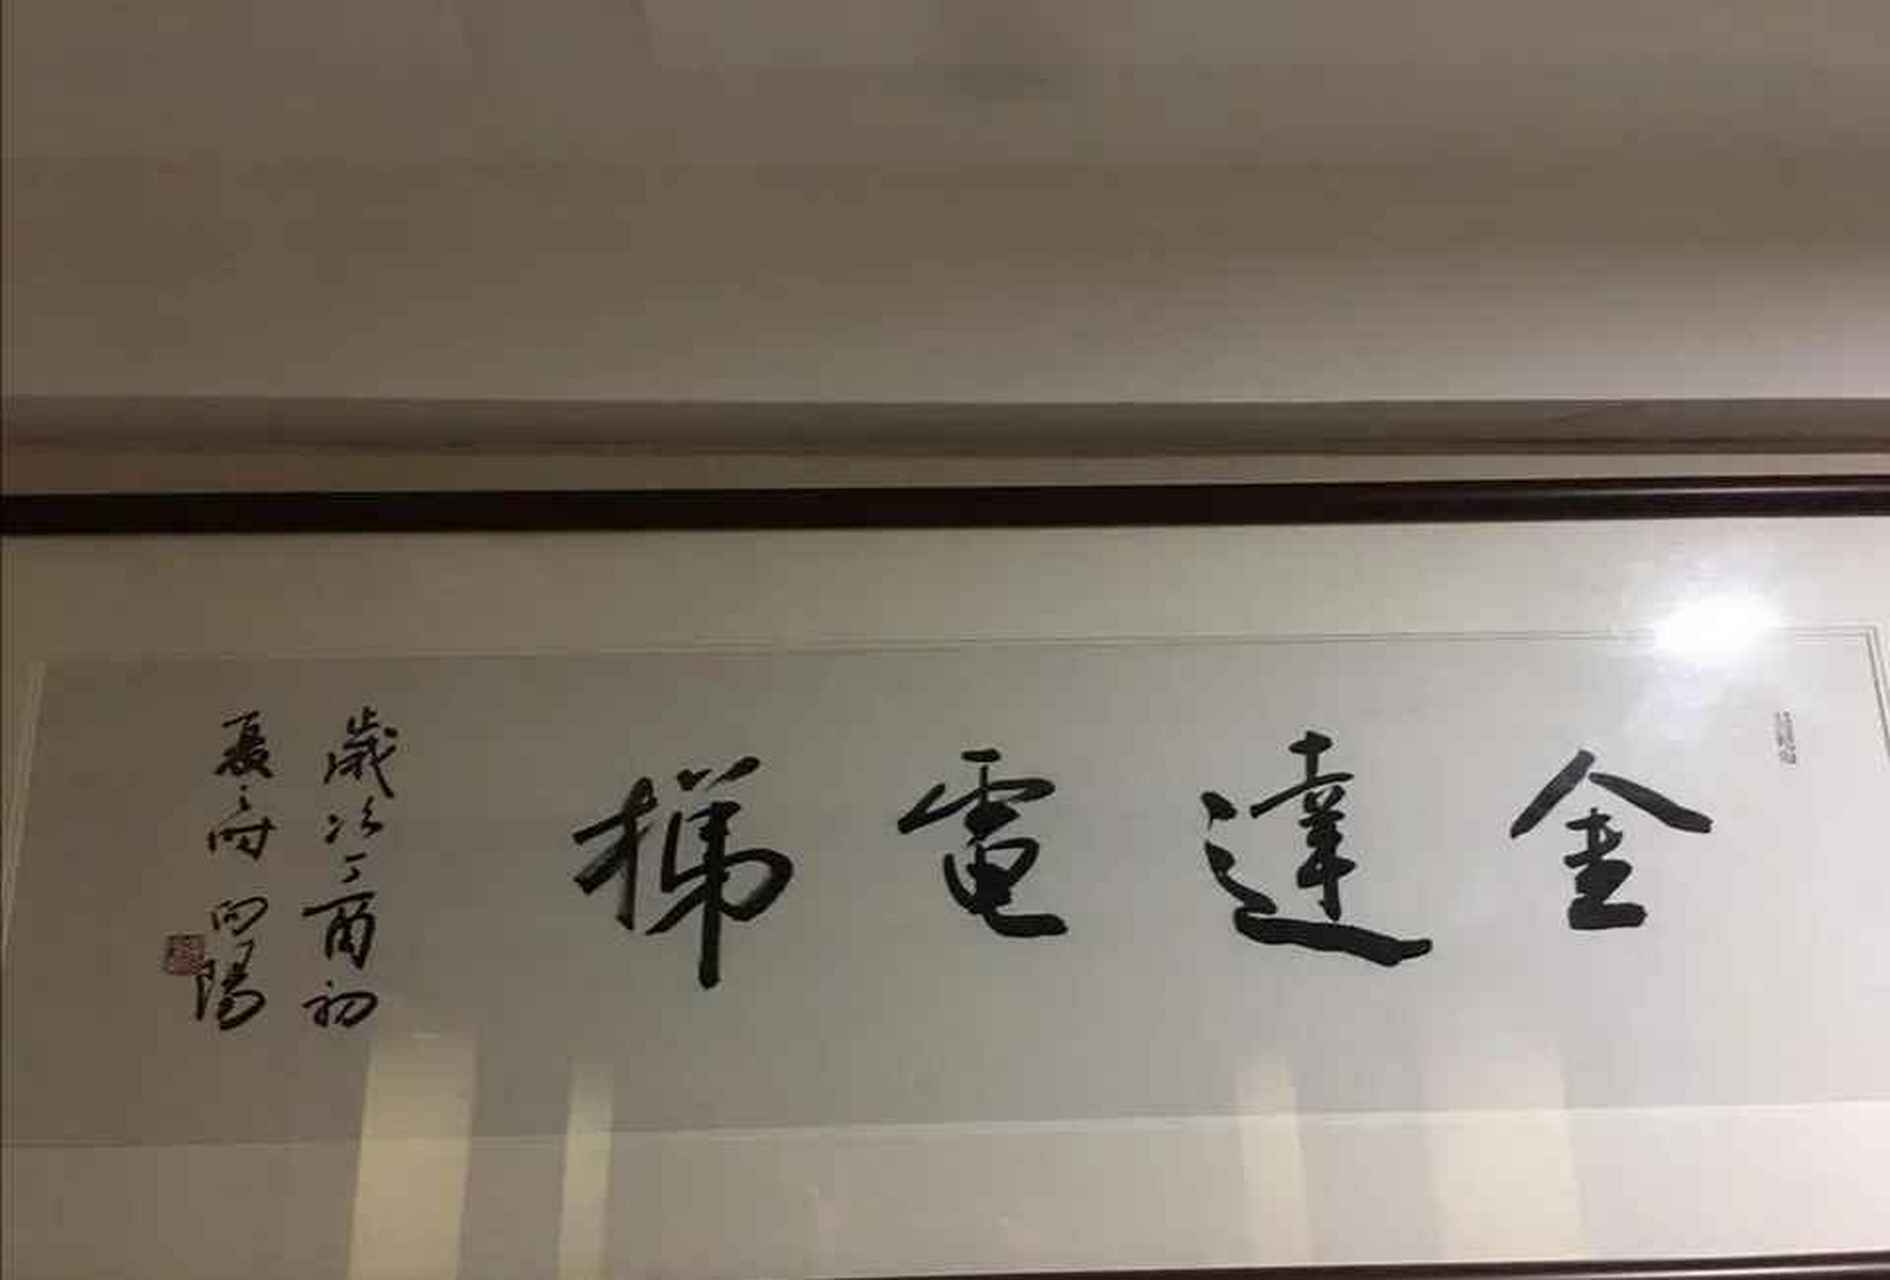 金達電梯
歲次丁酉初
夏之时向陽